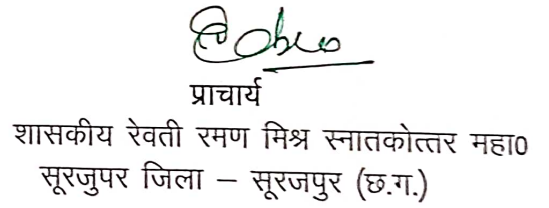 प्राचार्य
शासकीय रेवती रमण मिश्र स्नातकोत्तर महा0
सूरजुपर जिला – सूरजपुर (छ.ग.)